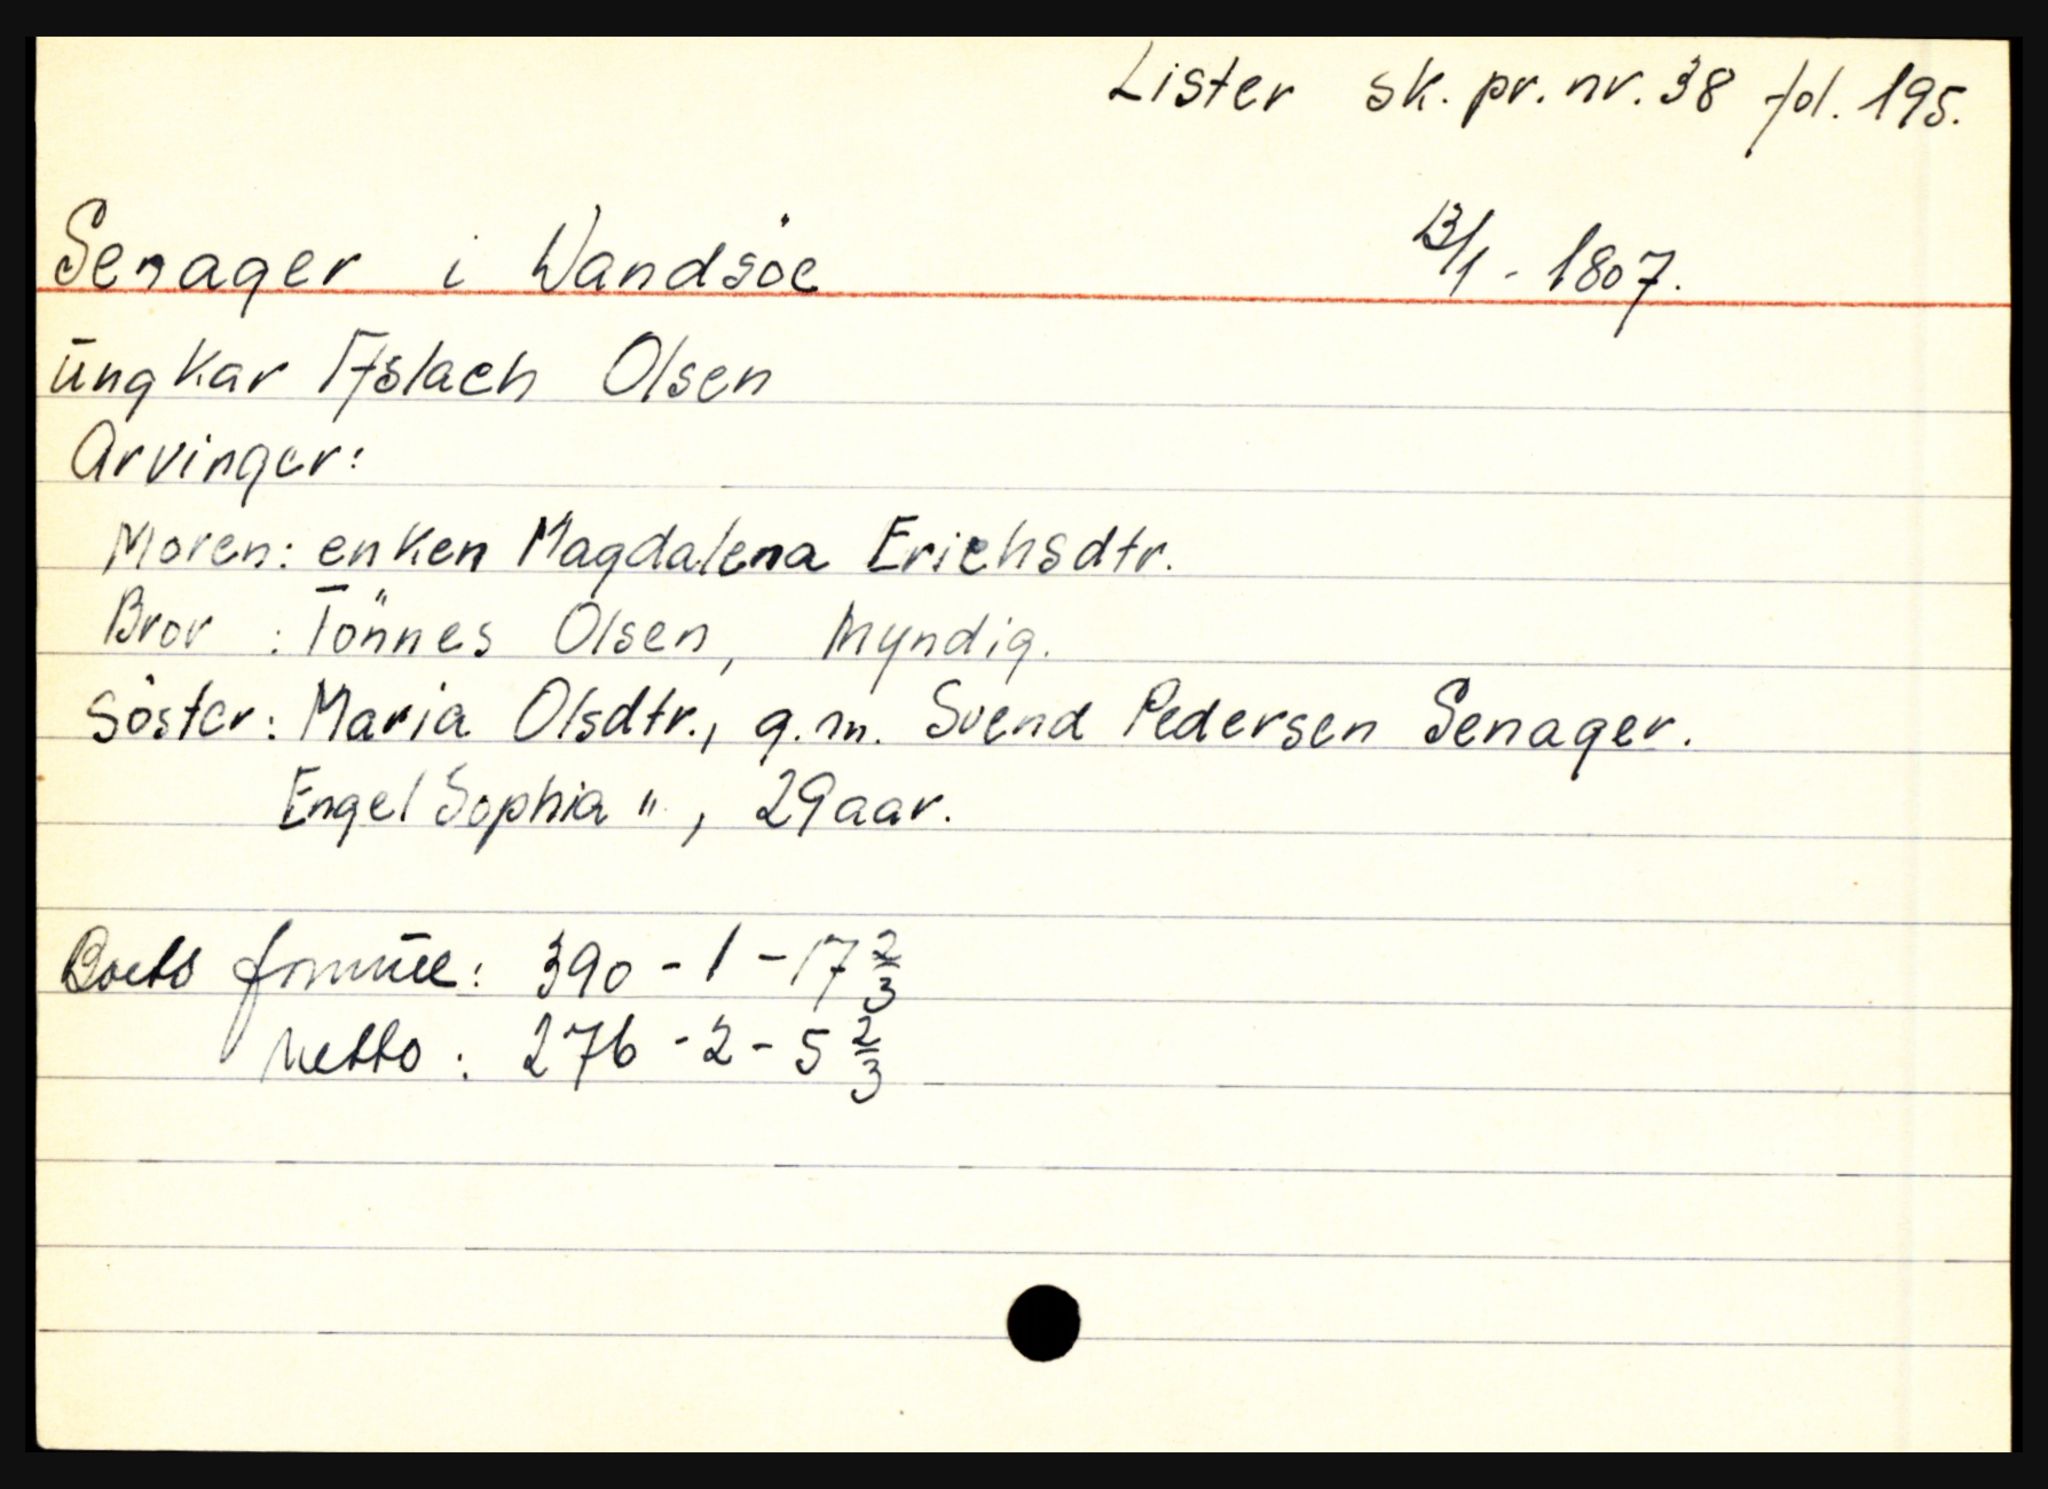 Lister sk. pr. nr. 38 fol. 195.
Senager i Wandsöe 13/1 - 1807.
ungkar Aslach Olsen
Arvinger:
Moren: enken Magdalena Erichsdtr.
Bror : Tönnes Olsen, myndig.
Söster: Maria Olsdtr., g.m. Svend Pedersen Senager.
Engel Sophia " , 29 aar.
Boets formue: 390 - 1 - 17 2/3
Netto : 276 - 2 - 5 2/3